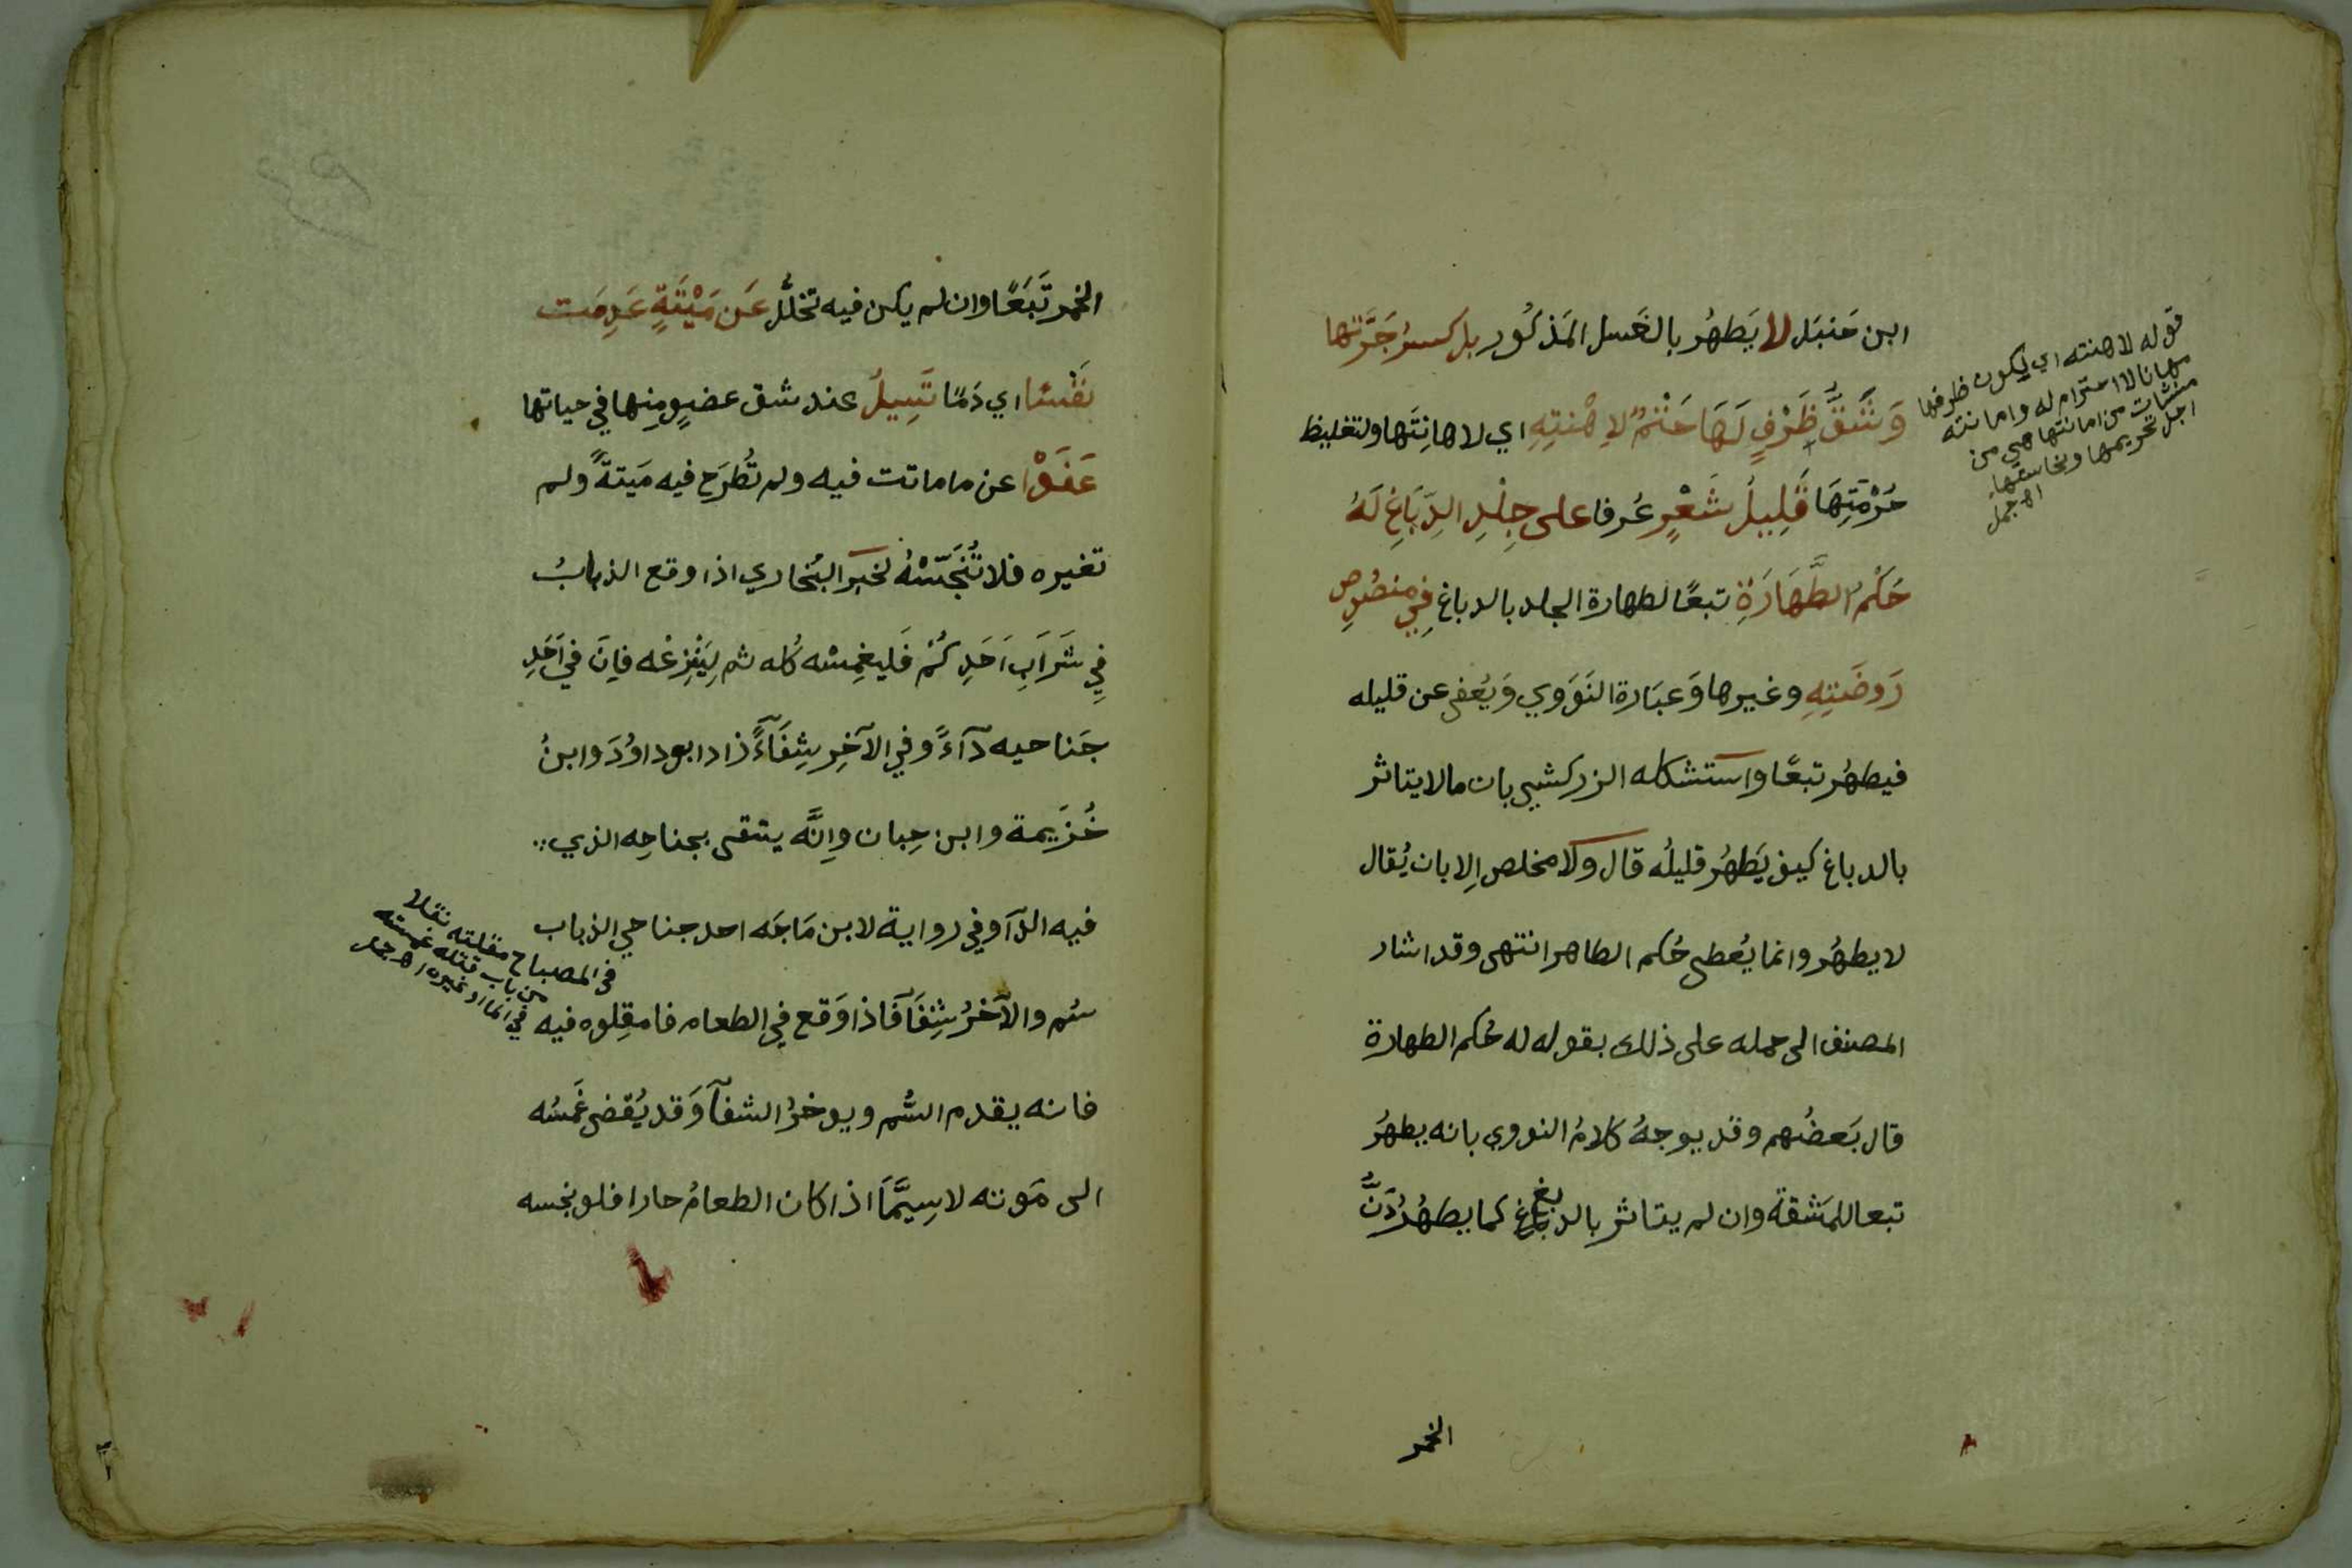 ابن حَنبَل لا يَطهُر بالغَسل المَذكُور بل كسرُ جَرَّتها
وَشَقُّ ظَرْفٍ لَهَا حَتْمٌ لِاِهْنتِهِ اي لاهانِتَها ولتغليظ
حُرْمَتِهَا قَلِيلُ شَعْرٍ عُرفا على جِلْدِ الدِّبَاغِ لَهُ
حَكْمُ الطَّهَارَةِ تبعًا لطهارة الجلد بالدباغ فِي منصُوصِ
رَوضَتِهِ وغيرها وَعبَارة النَوَوي وَيُعفى عن قليله
فيطهُر تبعًا واستشكله الزركشي بان مالا يتاثر
بالدباغ كيف يَطهُر قليلُه قال ولا مخلص اِلا بان يُقال
لا يطهُر وانما يُعطى حُكم الطاهر انتهى وقد اشار
المصنف الى حمله على ذلك بقوله له حُكم الطهارة
قال بَعضُهم وقد يوجهُ كلامُ النووي بانه يطهُر
تبعا للمَشقة وان لم يتاثر بالدبغ كما يطهُرُ دَنُّ
الخمر
قوله لاهنته اي ليكون ظرفها
مهانا لا احترام له واهانته
منشات من اهانتها هي من
اجل تحريمها ونجاستها
اه جمل
الخمر تَبَعًا وان لم يكن فيه تخلُّل عَن مَيْتَةٍ عَدِمَت
نَفْسًا اي دَمًا تَسِيلُ عند شق عضوٍ مِنها في حياتها
عَفَوْا عن ما ماتت فيه ولم تُطرَح فيه مَيتةً ولم
تغيره فلا تُنَجّسْهُ لخبر البُخاري اذا وقع الذبابُ
فِي شَرَابِ اَحَدِكُمْ فَليغمِسْه كُله ثم لِيَنْزِعْه فاِنَ في اَحَدِ
جَناحيه دآءً وفي الآخِر شِفَآءً زاد ابو داوُدَ وابنُ
خُزَيمة وابن حِبان واِنَّه يتقى بجناحِه الذي
فيه الدآ وفي رواية لابن مَاجَه احد جناحي الذباب
سُم والآخرُ شِفَآ فَاذا وَقع في الطعام فامقِلوه فيه
فانه يقدم السُّم ويوخرُ الشفآ وَقد يُفضى غَمسُه
الى مَوته لاسِيَّمَا اذا كان الطعامُ حارا فلو نجسه
في المصباح مقلته مقلا
من باب قتله غمسته
في الما او غيره اه جمل